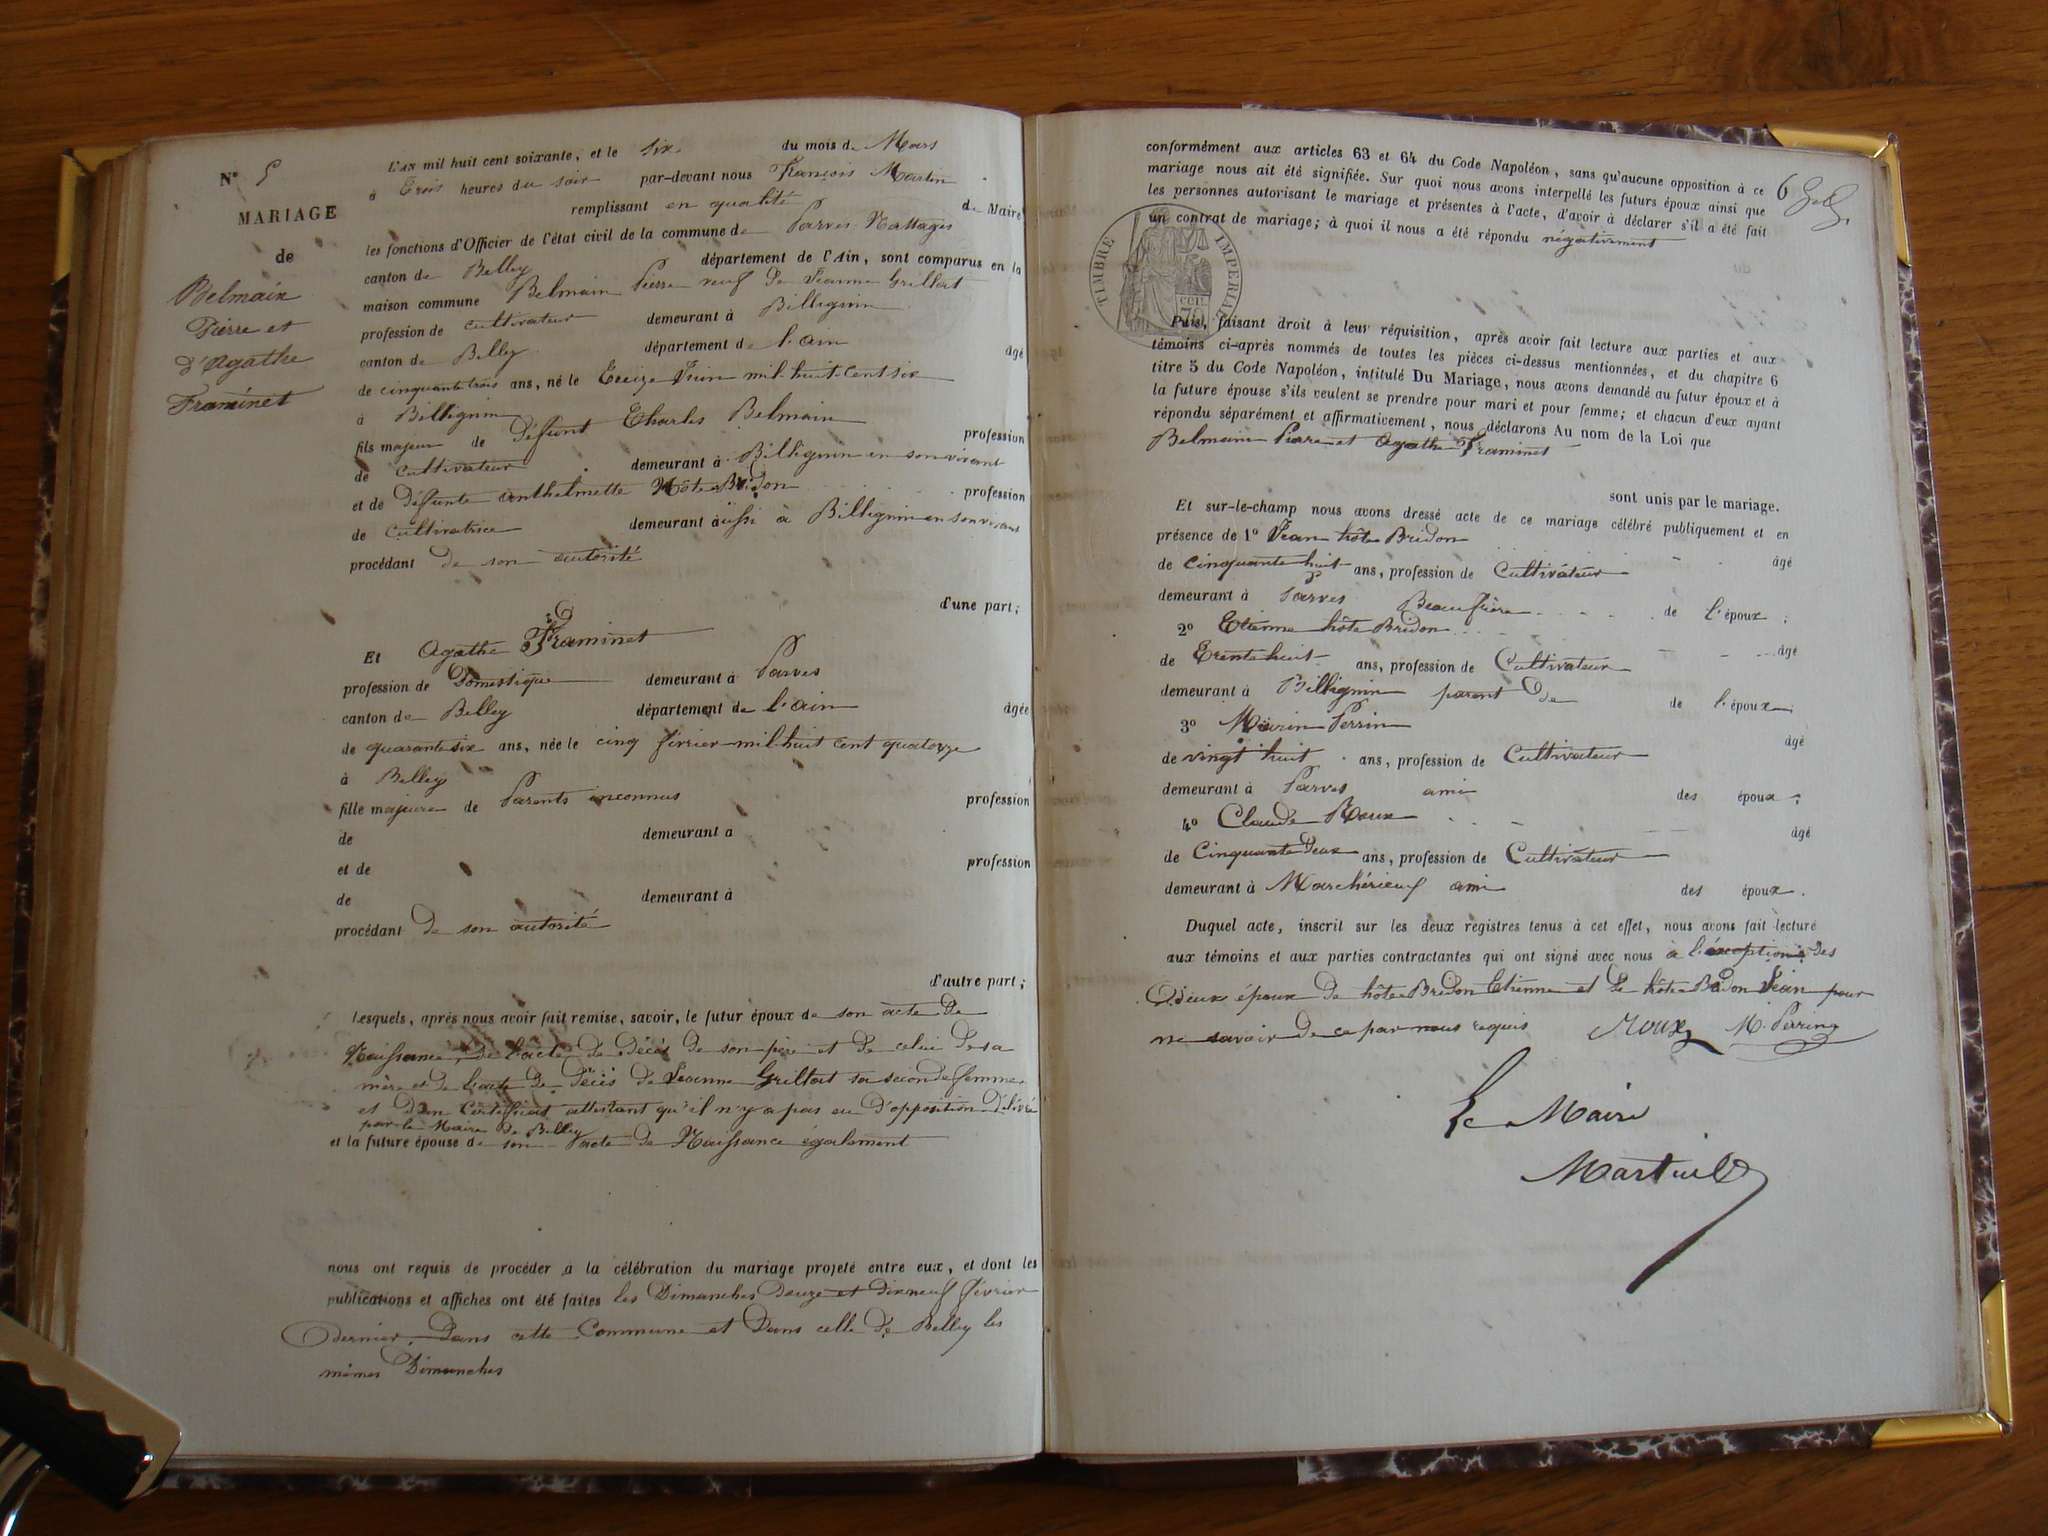 N° 5
MARIAGE
de
Belmain
Pierre et
d'Agathe
Framinet
L'AN mil huit cent soixante, et le six du mois de Mars
à Trois heures du soir par-devant nous François Martin
remplissant en qualité de Maire
les fonctions d'Officier de l'état civil de la commune de Parves-Nattages
canton de Belley département de l'Ain, sont comparus en la
maison commune Belmain Pierre veuf de Jeanne Grillat
profession de cultivateur demeurant à Billignin
canton de Belley département de l'ain âgé
de cinquante trois ans, né le Treize Juin mil huit cent six
à Billignin
fils majeur de Défunt Charles Belmain profession
de cultivateur demeurant à Billignin en son vivant
et de Défunte anthelmette hôte Bridon profession
de cultivatrice demeurant aussi à Billignin en son vivant
procédant de son autorité
d'une part;
Et Agathe Framinet
profession de Domestique demeurant à Parves
canton de Belley département de l'ain âgée
de quarante six ans, née le cinq février mil huit cent quatorze
à Belley
fille majeure de Parents inconnus profession
de demeurant à
et de profession
de demeurant à
procédant de son autorité
d'autre part;
Lesquels, après nous avoir fait remise, savoir, le futur époux de son acte de
Naissance, de l'acte de décès de son père et de celui de sa
mère et de l'acte de Décès de Jeanne Grillat sa seconde femme
et d'un Certificat attestant qu'il n'y a pas eu d'opposition Délivré
par le Maire de Belley
et la future épouse de son acte de Naissance également
nous ont requis de procéder à la célébration du mariage projeté entre eux, et dont les
publications et affiches ont été faites les Dimanches douze et dix neuf février
dernier, Dans cette Commune et Dans celle de Belley les
mêmes Dimanches
conformément aux articles 63 et 64 du Code Napoléon, sans qu'aucune opposition à ce
mariage nous ait été signifiée. Sur quoi nous avons interpellé les futurs époux ainsi que
les personnes autorisant le mariage et présentes à l'acte, d'avoir à déclarer s'il a été fait
un contrat de mariage; à quoi il nous a été répondu négativement
6
TIMBRE IMPERIAL
70 CEN.
Puis, faisant droit à leur réquisition, après avoir fait lecture aux parties et aux
témoins ci-après nommés de toutes les pièces ci-dessus mentionnées, et du chapitre 6
titre 5 du Code Napoléon, intitulé Du Mariage, nous avons demandé au futur époux et à
la future épouse s'ils veulent se prendre pour mari et pour femme; et chacun d'eux ayant
répondu séparément et affirmativement, nous déclarons Au nom de la Loi que
Belmain Pierre et Agathe Framinet
sont unis par le mariage.
Et sur-le-champ nous avons dressé acte de ce mariage célébré publiquement et en
présence de 1° Jean hôte Bridon
de cinquante huit ans, profession de Cultivateur âgé
demeurant à Parves Beau frère de l'époux;
2° Etienne hôte Bridon
de Trente huit ans, profession de Cultivateur âgé
demeurant à Billignin parent de de l'époux
3° Marin Perrin
de vingt huit ans, profession de Cultivateur âgé
demeurant à Parves ami des époux;
4° Claude Roux
de Cinquante Deux ans, profession de Cultivateur âgé
demeurant à Marchérieuf ami des époux.
Duquel acte, inscrit sur les deux registres tenus à cet effet, nous avons fait lecture
aux témoins et aux parties contractantes qui ont signé avec nous à l'exception des
Deux époux de hôte Bridon Etienne et de hôte Bridon Jean pour
ne savoir de ce par nous requis Roux M. Perrin
Le Maire
Martin